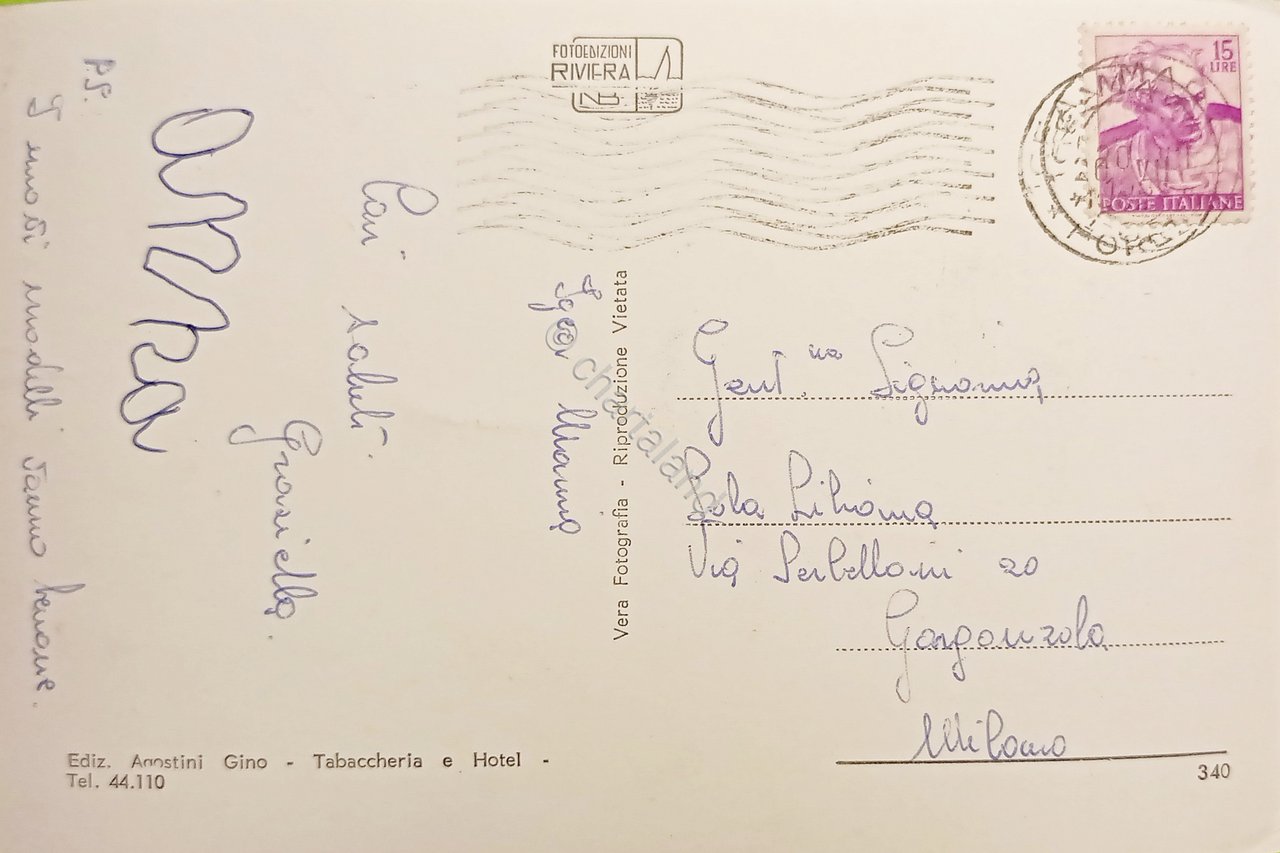 FOTOEDIZIONI
RIVIERA
NB
15
LIRE
POSTE ITALIANE
Igea Marina
Cari saluti.
Graziella
Anna
P.S.
I nuovi modelli vanno benone.
Vera Fotografia - Riproduzione Vietata
© chartaland
Gent.ma Signorina
Liliana
Via Serbelloni 20
Gorgonzola
Milano
Ediz. Agostini Gino - Tabaccheria e Hotel -
Tel. 44.110
340